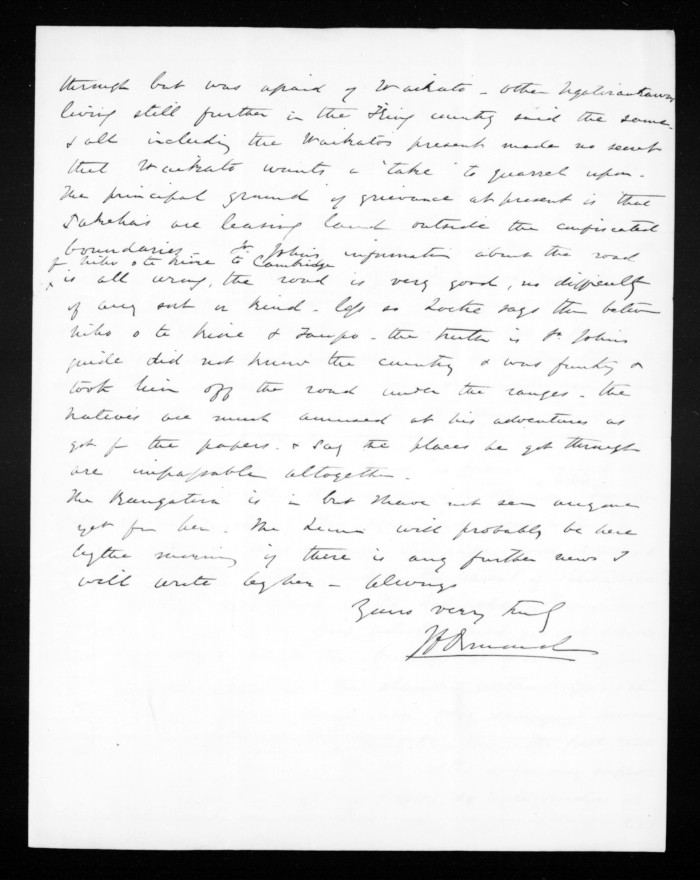 through but was afraid of Waikato - other Ngatiraukawas
living still further in the King country said the same -
& all including the Waikatos present made no secret
that Waikato wants a "take" to quarrel upon.
The principal ground of grievance at present is that
Pakehas are leasing land outside the confiscated
boundaries - St. Johns information about the road
f Niho o te Kiore to Cambridge
x is all wrong, the road is very good, no difficulty
of any sort or kind - less so Locke says than between
Niho o te Kiore & Taupo - the truth is St. Johns
guide did not know the country & was funky &
took him off the road under the ranges - the
Natives are much amused at his adventures as
got f the papers - & say the places he got through
are impassable altogether.
The Rangatira is in but I have not seen anyone
yet from her. The Luna will probably be here
by the morning if there is any further news I
will write by her - Always
Yours very truly
JD Ormond